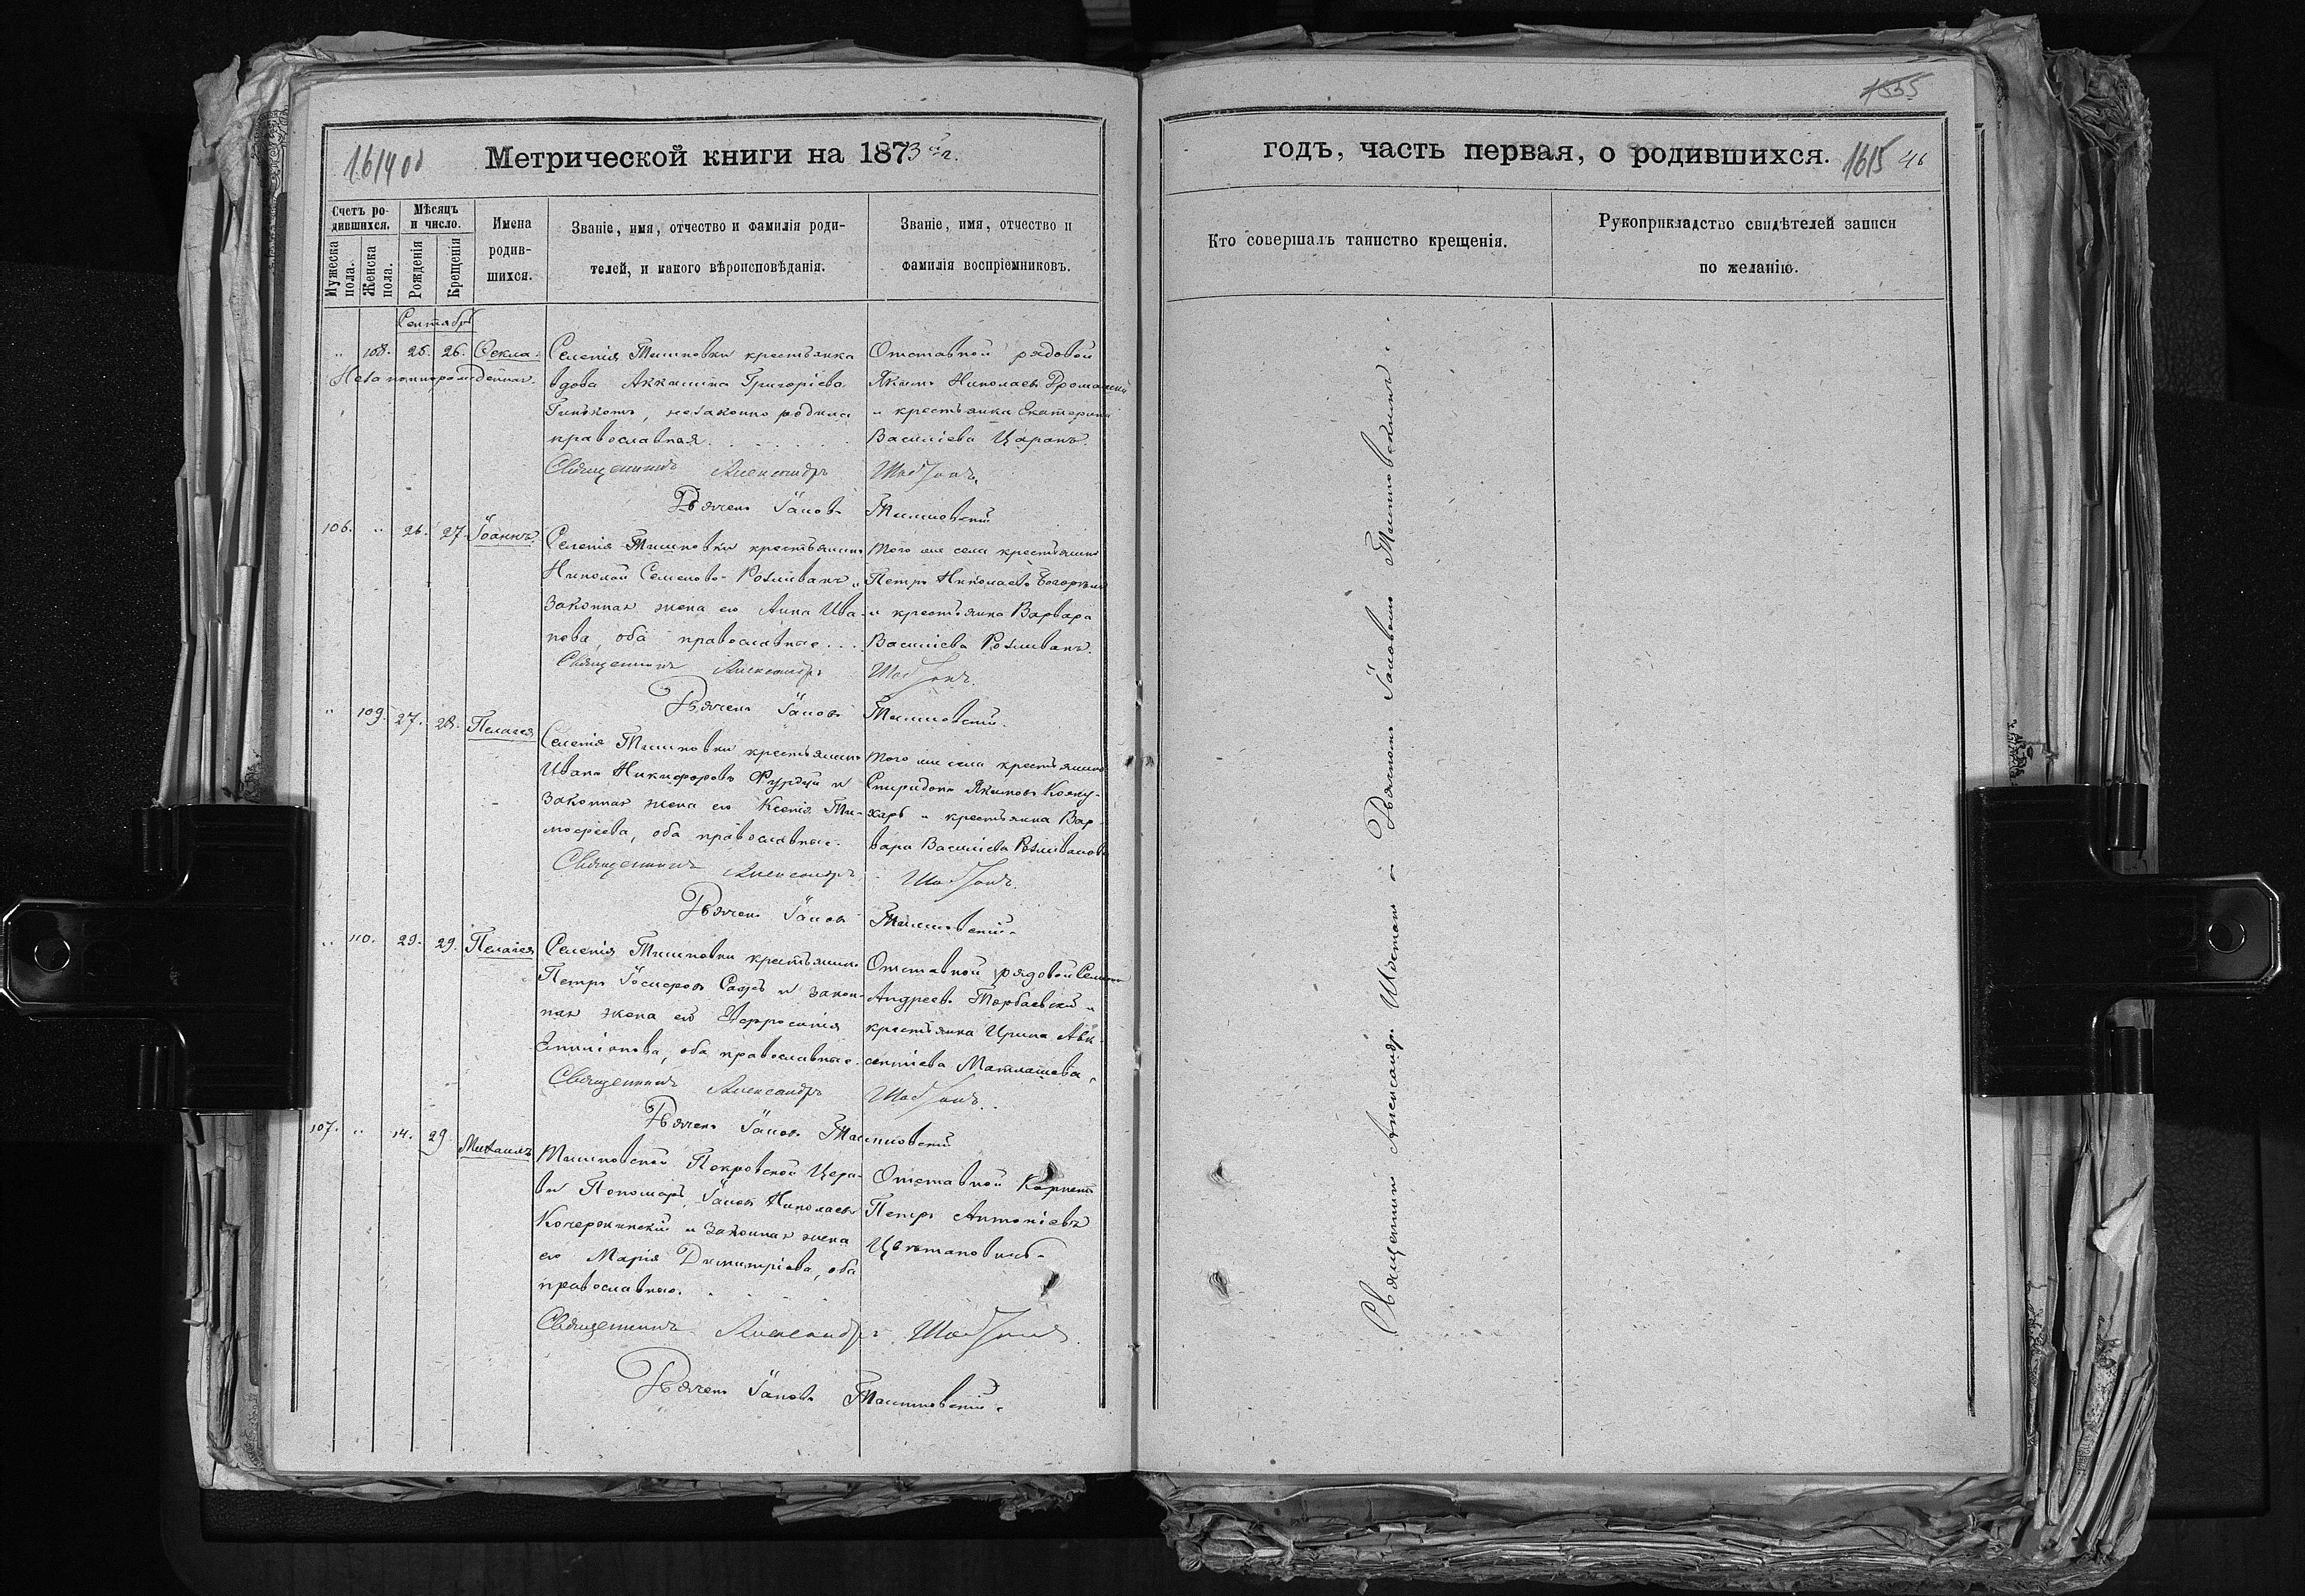 1614 об
Метрической книги на 1873 й г.
Счетъ родившихся.
Мѣсяцъ и число.
Мужеска пола.
Женска пола.
Рожденія
Крещенія
Имена родившихся.
Званіе, имя, отчество и фамилія родителей, и какого вѣроисповѣданія.
Званіе, имя, отчество и фамилія воспріемниковъ.
Сентябрь
" 108. 25. 26. Ѳекла.
Незаконнорожденная.
Селенія Тишковки крестьянка
вдова Аккилина Григоріева
незаконно родила
православная
Отставной рядовой
Якимъ Николаевъ
и крестьянка Екатерина
Василіева Царанъ.
Священникъ Александръ Шостакъ
Дьячекъ Іаковъ Тишковскій
106. " 26. 27. Іоаннъ.
Селенія Тишковки крестьянинъ
Николай Семеновъ Розливанъ и
законная жена его Анна Ива-
нова, оба православные
Того же села крестьянинъ
Петръ Николаевъ
и крестьянка Варвара
Василіева Розливанъ.
Священникъ Александръ Шостакъ.
Дьячекъ Іаковъ Тишковскій.
" 109. 27. 28. Пелагея
Селенія Тишковки крестьянинъ
Иванъ Никифоровъ Фурдуй и
законная жена его Ксенія Ти-
мофеева, оба православные.
Того же села крестьянинъ
Спиридонъ Якимовъ Кожу-
харь и крестьянка Вар-
вара Василіева Розливанова
Священникъ Александръ Шостакъ.
Дьячекъ Іаковъ Тишковскій.
" 110. 29. 29. Пелагея
Селенія Тишковки крестьянинъ
Петръ Іосифовъ и закон-
ная жена его Евфросинія
оба православные.
Отставной рядовой Семенъ
Андреевъ Торбаевскій и
крестьянка Ирина Авк-
сентіева Матлашева.
Священникъ Александръ Шостакъ.
Дьячекъ Іаковъ Тишковскій
107. " 14. 29 Михаилъ
Тишковской Покровской Церк-
ви Пономарь Іаковъ Николаевъ
Кочержинскій и законная жена
его Марія Димитріева, оба
православные.
Отставной Корнетъ
Петръ Антоніевъ
Цвѣтановичъ
Священникъ Александръ Шостакъ.
Дьячекъ Іаковъ Тишковскій.
1555
годъ, часть первая, о родившихся.
1615 46
Кто совершалъ таинство крещенія.
Рукоприкладство свидѣтелей записи по желанію.
Священникъ Александръ Шостакъ съ Дьячкомъ Іаковомъ Тишковскимъ.